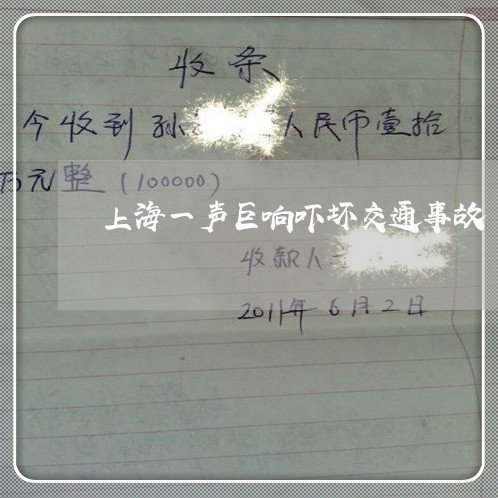 收条
今收到孙 人民币壹拾
万元整(100000)
上海一声巨响吓坏交通事故
收款人
2011年6月2日